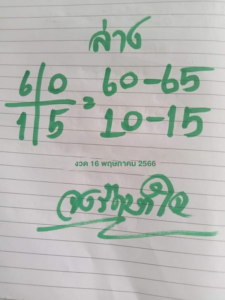 ล่าง
6 0 = 60-65
1 5 10-15
งวด 16 พฤษภาคม 2566